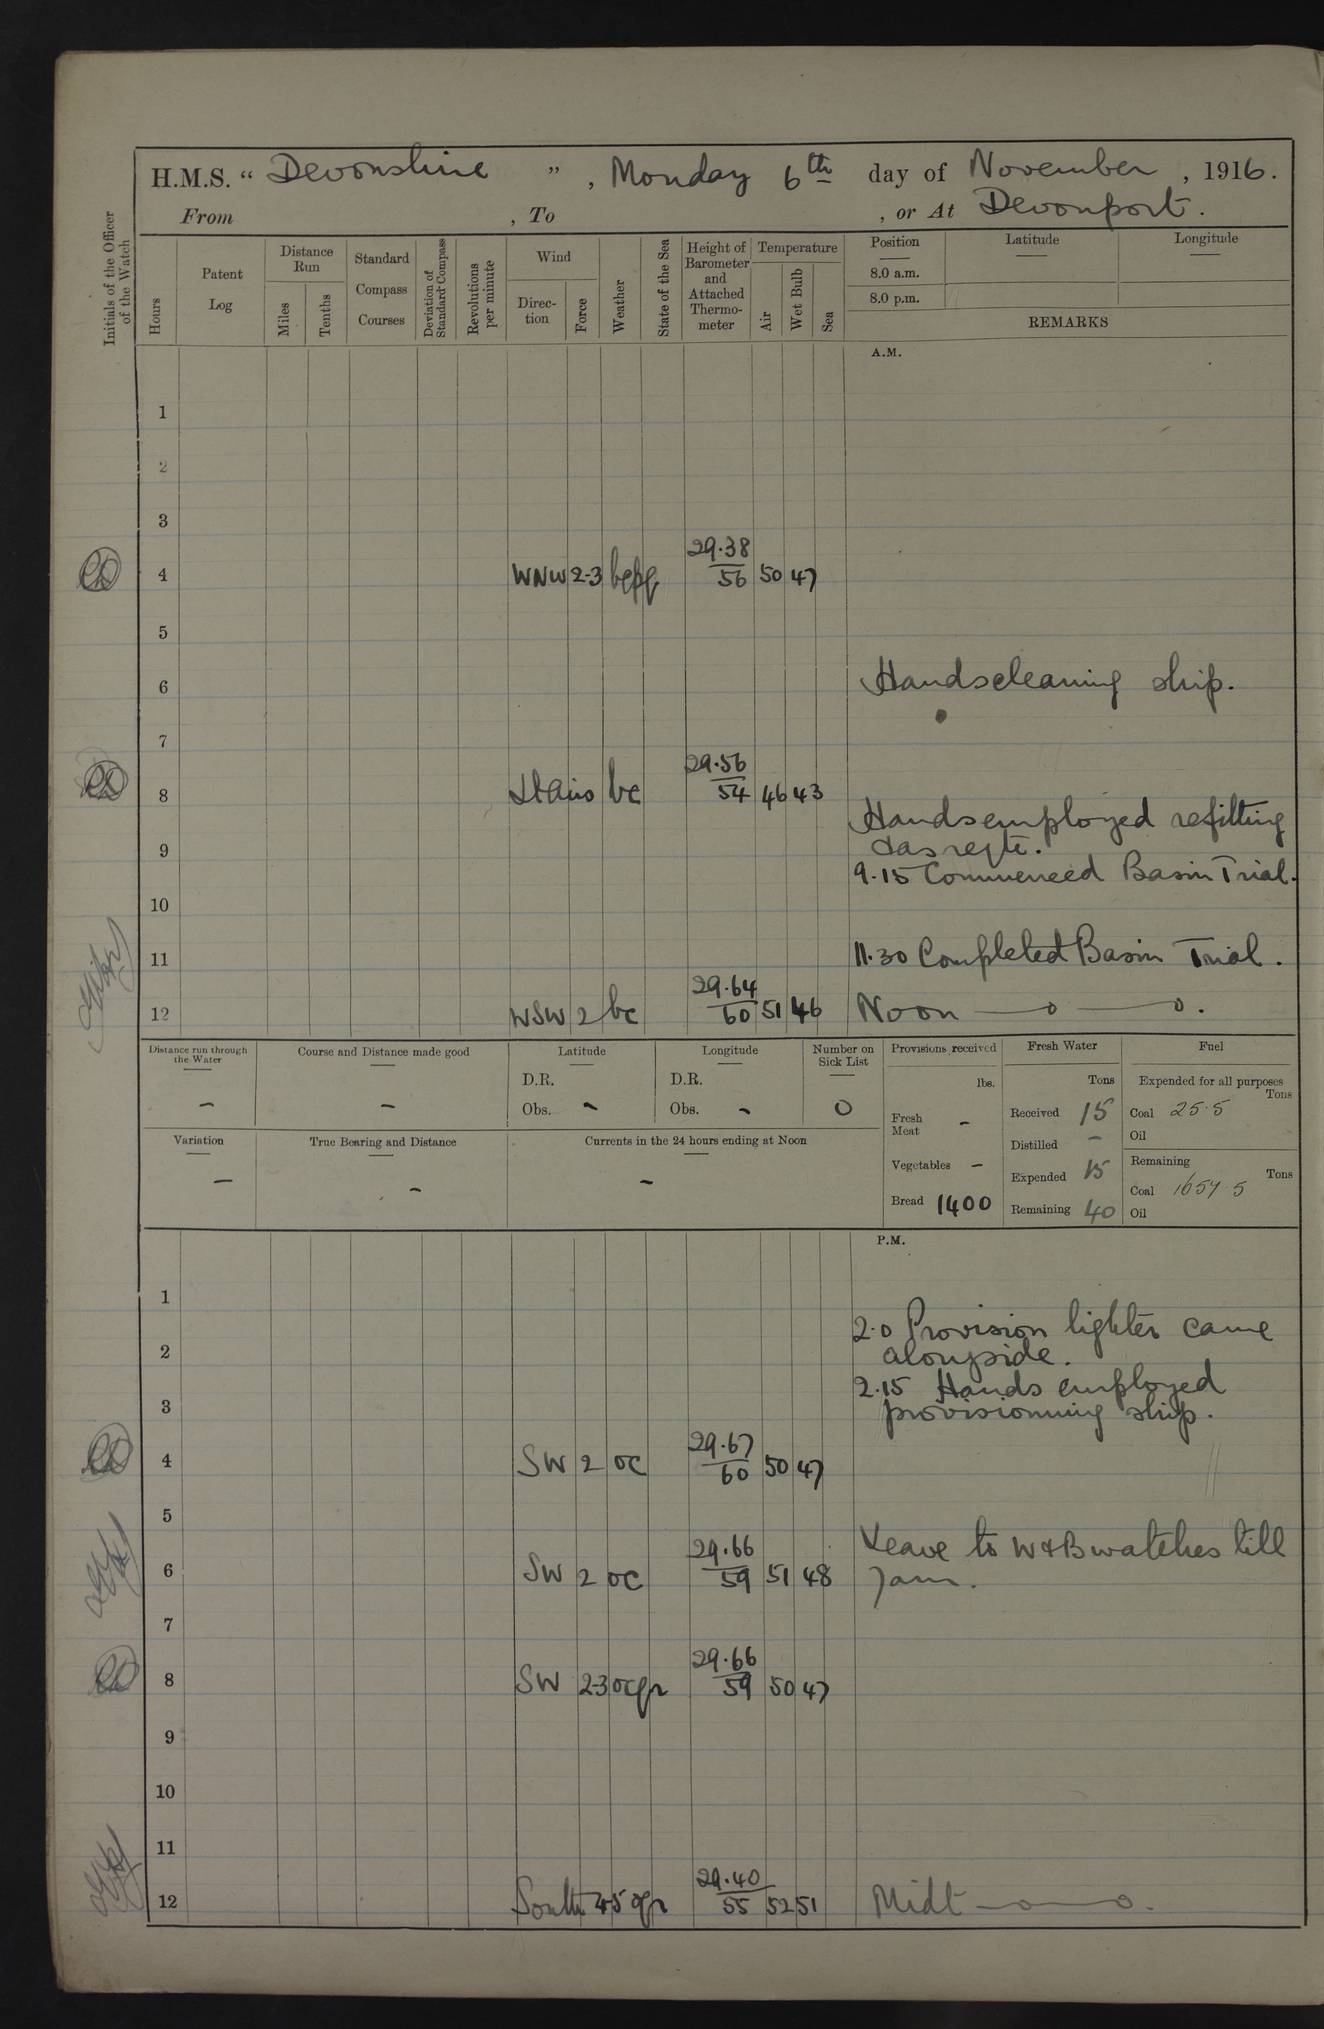 H.M.S. “ Devonshire ” , Monday 6th day of November , 1916.
From , To , or At Devonport.
Initials of the Officer of the Watch
Hours
Patent Log
Distance Run
Miles
Tenths
Standard Compass Courses
Deviation of Standard Compass
Revolutions per minute
Wind
Direc-tion
Force
Weather
State of the Sea
Height of Barometer and Attached Thermo-meter
Temperature
Air
Wet Bulb
Sea
Position
8.0 a.m.
8.0 p.m.
Latitude
Longitude
REMARKS
A.M.
1
2
3
4 WNW 2-3 29.38/56 50 47
5
6 Hands cleaning ship.
7
8 Lt Airs bc 29.56/54 46 43
Hands employed refitting
9 das reqte.
9.15 Commenced Basin Trial.
10
11 11.30 Completed Basin Trial.
12 WSW 2 bc 29.64/60 51 46 Noon
Distance run through the Water
–
Course and Distance made good
–
Latitude
D.R.
Obs. –
Longitude
D.R.
Obs. –
Number on Sick List
0
Provisions received
lbs.
Fresh Meat –
Vegetables –
Bread 1400
Fresh Water
Tons
Received 15
Distilled –
Expended 15
Remaining 40
Fuel
Expended for all purposes
Tons
Coal 25.5
Oil
Remaining
Tons
Coal 1657.5
Oil
Variation
–
True Bearing and Distance
–
Currents in the 24 hours ending at Noon
–
P.M.
1
2.0 Provision lighter came
2 alongside.
2.15 Hands employed
3 provisionning ship.
4 SW 2 oc 29.67/60 50 47
5
Leave to W & B watches till
6 SW 2 oc 29.66/59 51 48 7am.
7
8 SW 2-3 ocqr 29.66/59 50 47
9
10
11
12 South 4-5 oqr 29.40/55 52 51 Midt